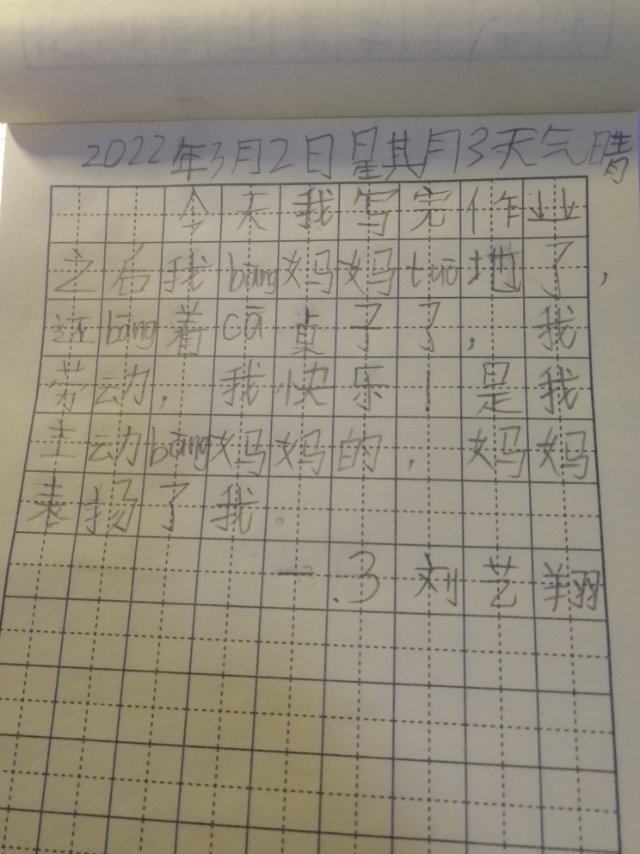 2022年3月2日星其月3天气晴
今天我写完作业
之后我bāng妈妈tuō地了,
还bāng着cā桌子了,我
劳动,我快乐!是我
主动bāng妈妈的,妈妈
表扬了我。
一.3刘艺翔